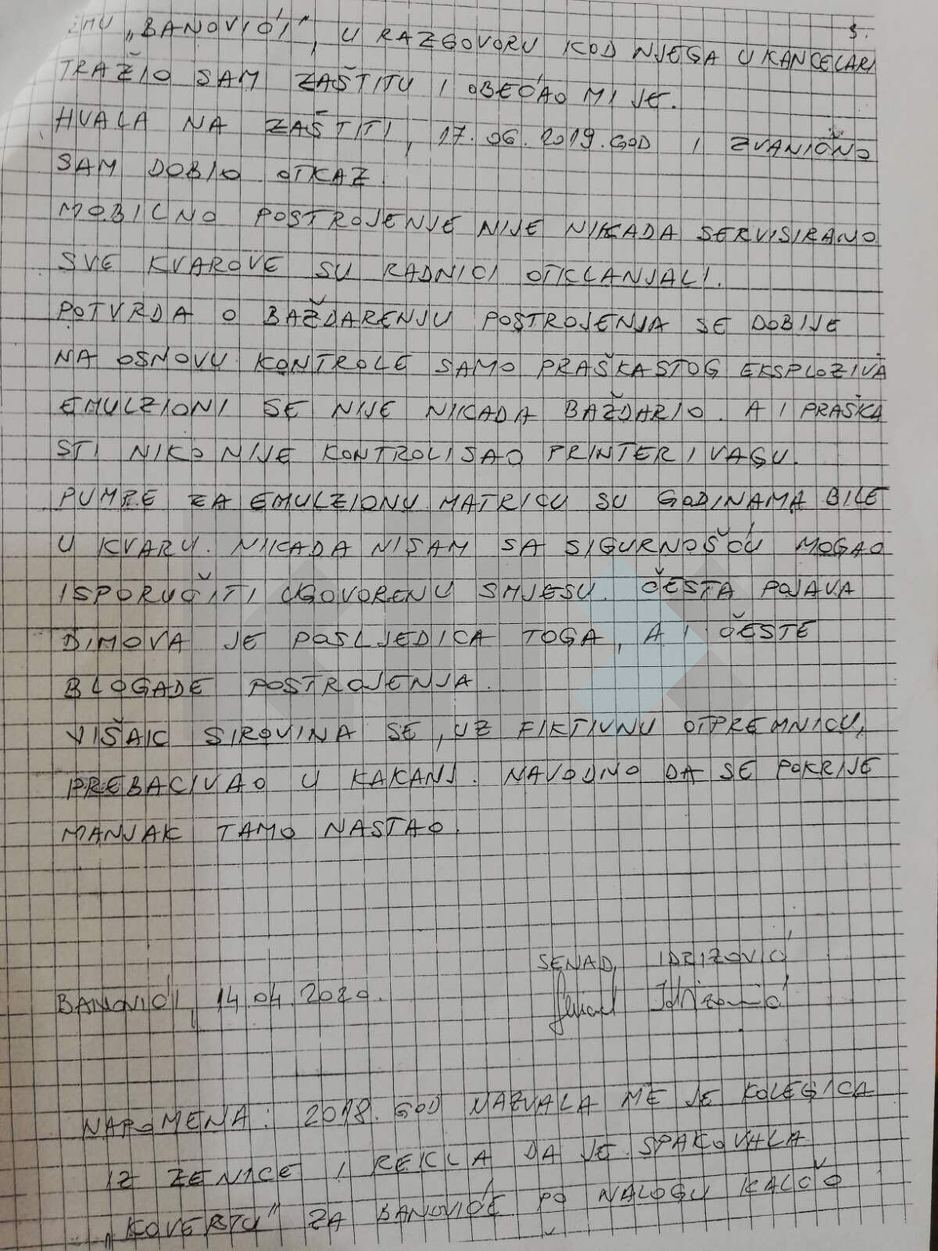 5.
"BANOVIĆI", U RAZGOVORU KOD NJEGA U KANCELARI
TRAŽIO SAM ZAŠTITU I OBEĆAO MI JE.
HVALA NA ZAŠTITI, 17.06.2019.GOD I ZVANIČNO
SAM DOBIO OTKAZ.
MOBILNO POSTROJENJE NIJE NIKADA SERVISIRANO
SVE KVAROVE SU RADNICI OTKLANJALI.
POTVRDA O BAŽDARENJU POSTROJENJA SE DOBIJE
NA OSNOVU KONTROLE SAMO PRAŠKASTOG EKSPLOZIVA
EMULZIONI SE NIJE NIKADA BAŽDARIO. A I PRAŠKA
STI NIKO NIJE KONTROLISAO PRINTER I VAGU.
PUMPE ZA EMULZIONU MATRICU SU GODINAMA BILE
U KVARU. NIKADA NISAM SA SIGURNOŠĆU MOGAO
ISPORUČITI UGOVORENU SMJESU. ČESTA POJAVA
DIMOVA JE POSLJEDICA TOGA, A I ČESTE
BLOGADE POSTROJENJA.
VIŠAK SIROVINA SE, UZ FIKTIVNU OTPREMNICU,
PREBACIVAO U KAKANJ. NAVODNO DA SE POKRIJE
MANJAK TAMO NASTAO.
SENAD IDRIZOVIĆ
BANOVIĆI, 14.04.2020.
Senad Idrizović
NAPOMENA: 2018.GOD NAZVALA ME JE KOLEGICA
IZ ZENICE I REKLA DA JE SPAKOVALA
"KOVERTU" ZA BANOVIĆE PO NALOGU KALČO